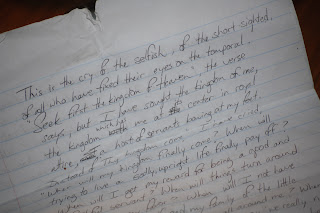 This is the cry of the selfish, of the short sighted,
of all who have fixed their eyes on the temporal.
Seek first the kingdom of heaven", the verse
says, but I have sought the kingdom of me,
the kingdom with me at the center in royal
attire, a host of servants bowing at my feet.
Instead of "This kingdom come" I have cried,
"When will my kingdom finally come? When will
trying to live a godly, upright life finally pay off?
When will I get my reward for being a good and
servant? When will things turn around
favor? When will I not have
and my family of the little
around me? When
we really